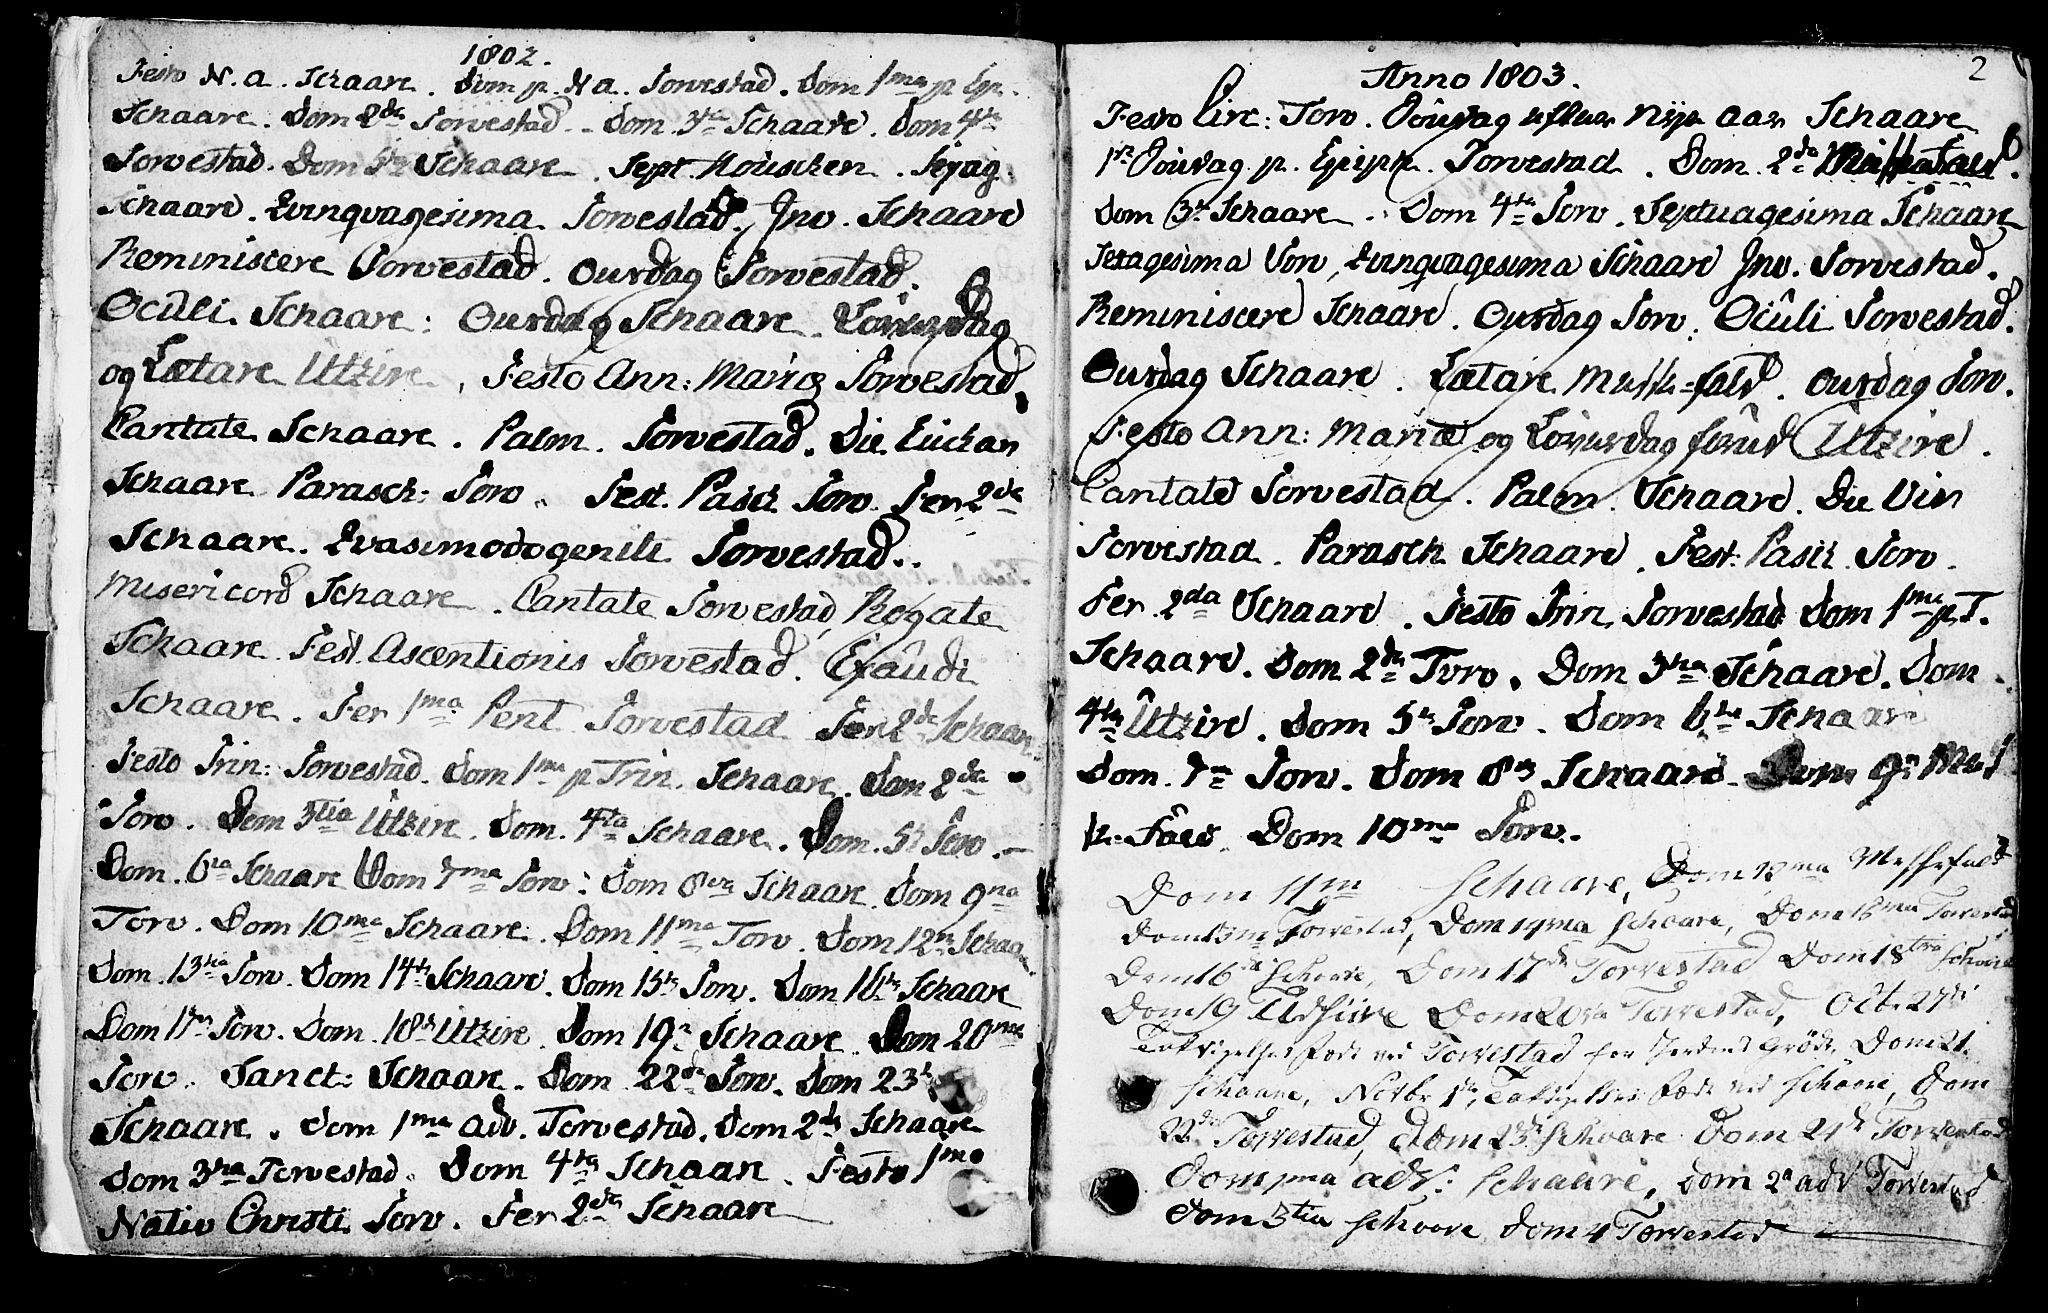 1802.
Festo N. a. Schaare. Dom p. Na. Torvestad. Dom 1ma p Ep.
Schaare. Dom 2da Torvestad. Dom. 3tia Schaare. Dom 4ta
Torvestad. Dom 5ta Schaare. Sept. Houschen. Sexag.
Schaare. Qvinqvagesima Torvestad. Inv. Schaare
Reminiscere Torvestad. Onsdag Torvestad.
Oculi. Schaare: Onsdag Schaare. Löverdag
og Lætare Utzire, Festo Ann: Mariæ Torvestad,
Cantate Schaare. Palm. Torvestad. Die Euchar
Schaare Parasch: Torv. Fest. Pasch Torv. Fer 2da
Schaare. Qvasimodogeniti Torvestad..
Misericord Schaare. Cantate Torvestad, Rogate
Schaare. Fest. Ascentionis Torvestad. Exaudi
Schaare. Fer 1ma Pent Torvestad Fer 2da Schaar
Festo Trin: Torvestad. Dom 1ma p Trin. Schaare. Dom 2da
Torv. Dom 3tia Utzire. Dom. 4ta Schaare. Dom. 5t Torv.
Dom. 6ta Schaare Dom 7ma Torv: Dom 8va Schaare Dom 9na
Torv. Dom 10ma Schaare. Dom 11ma Torv. Dom 12m Schaa
Dom. 13tia Torv. Dom 14t Schaare. Dom 15t Torv. Dom 16t Schaare
Dom 17m Torv. Dom. 18d Utzire. Dom 19n Schaare Dom 20ma
Torv. Sanct: Schaare. Dom 22da Torv. Dom 23t
Schaare. Dom 1ma Adv. Torvestad. Dom 2da Schaare
Dom 3tia Torvestad. Dom 4ta Schaare. Festo 1mo
Nativ Christi Torv. Fer 2da Schaare
2
Anno 1803.
Festo Circ: Torv. Söndag efter Nÿe aar Schaare
1te Söndag p. Epiph. Torvestad. Dom. 2da
Dom 3t Schaare. Dom 4ta Torv. Septuagesima Schaare
Sexagesima Torv, Qvinqvagesima Schaare Inv. Torvestad.
Reminiscere Schaare. Onsdag Torv. Oculi Torvestad.
Onsdag Schaare. Lætare Musse=fald. Onsdag Torv.
Festo Ann: Mariæ og Löverdag forud Utzire.
Cantate Torvestad. Palm. Schaare. Die Vir
Torvestad. Parasch Schaare. Fest: Pasch. Torv.
Fer. 2da Schaare. Festo Trin. Torvestad Dom 1ma p T.
Schaare. Dom 2da Torv. Dom 3tia Schaare. Dom
4ta Utzire. Dom 5t Torv. Dom 6ta Schaare
Dom. 7m Torv. Dom 8v Schaare. Dom 9n
Dom 10ma Torv.
Dom 11m Schaare, Dom 12ma Messefald
Dom 13m Torvestad, Dom 14ma Schaare, Dom 15ma Torvestad
Dom 16da Schaare, Dom 17da Torvestad Dom 18tva Schaare
Dom 19 Udsiire Dom 20va Torvestad, Oct. 27di
Taksigelses fest ved Torvestad for Jordens Gröde, Dom 21.
Schaare, Novbr 1te, Taksigelses fest ved Schaare, Dom
22da Torvestad, Dom 23t Schaare Dom 24d Torvestad
Dom 1ma adv: Schaare, Dom 2a adv Torvestad
Dom 3tia Schaare Dom 4 Torvestad